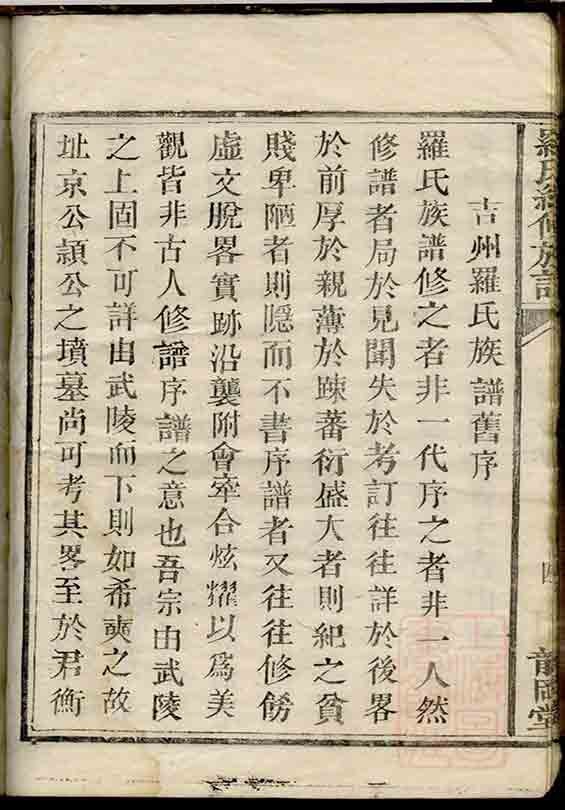 羅氏續修族譜
四
龍岡堂
吉州羅氏族譜舊序
羅氏族譜修之者非一代序之者非一人然
修譜者局於見聞失於考訂往往詳於後畧
於前厚於親薄於踈蕃衍盛大者則紀之貧
賤卑陋者則隱而不書序譜者又往往修餙
虛文脫畧實跡沿襲附會牽合炫耀以爲美
觀皆非古人修譜序譜之意也吾宗由武陵
之上固不可詳由武陵而下則如希奭之故
址京公頴公之墳墓尚可考其畧至於君衡